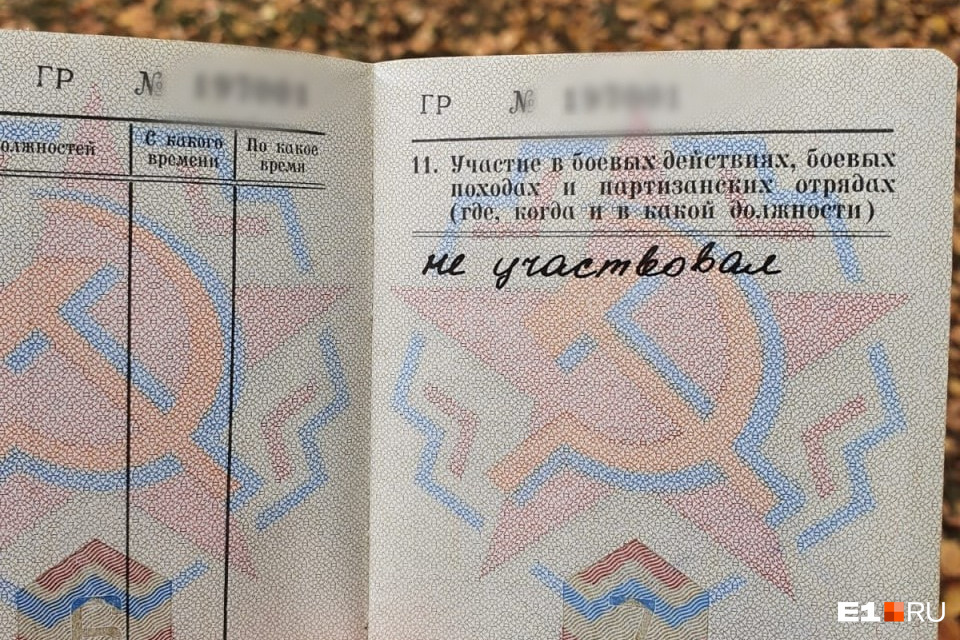 ГР №
олжностей
С какого
времени
По какое
время
ГР №
11. Участие в боевых действиях, боевых
походах и партизанских отрядах
(где, когда и в какой должности)
не участвовал
E1.RU